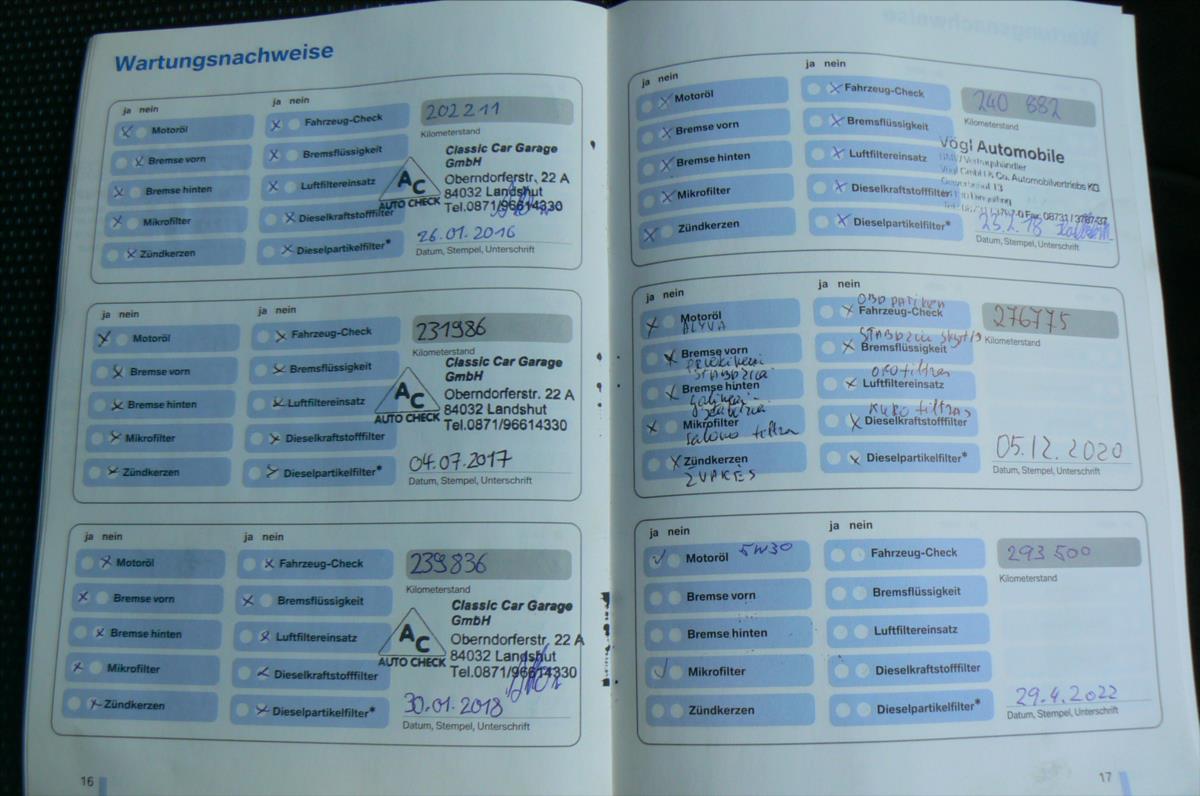 Wartungsnachweise
ja nein
ja nein
Motoröl
Fahrzeug-Check
Bremse vorn
Bremsflüssigkeit
Bremse hinten
Luftfiltereinsatz
Mikrofilter
Dieselkraftstofffilter
Zündkerzen
Dieselpartikelfilter*
202211
Kilometerstand
Classic Car Garage
GmbH
Oberndorferstr. 22 A
84032 Landshut
Tel.0871/96614330
AC
AUTO CHECK
26.01.2016
Datum, Stempel, Unterschrift
ja nein
ja nein
Motoröl
Fahrzeug-Check
Bremse vorn
Bremsflüssigkeit
Bremse hinten
Luftfiltereinsatz
Mikrofilter
Dieselkraftstofffilter
Zündkerzen
Dieselpartikelfilter*
231986
Kilometerstand
Classic Car Garage
GmbH
Oberndorferstr. 22 A
84032 Landshut
Tel.0871/96614330
AC
AUTO CHECK
04.07.2017
Datum, Stempel, Unterschrift
ja nein
ja nein
Motoröl
Fahrzeug-Check
Bremse vorn
Bremsflüssigkeit
Bremse hinten
Luftfiltereinsatz
Mikrofilter
Dieselkraftstofffilter
Zündkerzen
Dieselpartikelfilter*
239836
Kilometerstand
Classic Car Garage
GmbH
Oberndorferstr. 22 A
84032 Landshut
Tel.0871/96614330
AC
AUTO CHECK
30.01.2018
Datum, Stempel, Unterschrift
16
ja nein
ja nein
Motoröl
Fahrzeug-Check
Bremse vorn
Bremsflüssigkeit
Bremse hinten
Luftfiltereinsatz
Mikrofilter
Dieselkraftstofffilter
Zündkerzen
Dieselpartikelfilter*
240 882
Kilometerstand
Vögl Automobile
BMW Vertragshändler
Vögl GmbH & Co. Automobilvertriebs KG
23.2.18
Datum, Stempel, Unterschrift
ja nein
ja nein
Motoröl
ALYVA
Fahrzeug-Check
Bremse vorn
Bremsflüssigkeit
Bremse hinten
ORO filtras
Luftfiltereinsatz
Mikrofilter
KURO filtras
Dieselkraftstofffilter
Zündkerzen
ŽVAKĖS
Dieselpartikelfilter*
276775
Kilometerstand
05.12.2020
Datum, Stempel, Unterschrift
ja nein
ja nein
Motoröl 5W30
Fahrzeug-Check
Bremse vorn
Bremsflüssigkeit
Bremse hinten
Luftfiltereinsatz
Mikrofilter
Dieselkraftstofffilter
Zündkerzen
Dieselpartikelfilter*
293 500
Kilometerstand
29.4.2022
Datum, Stempel, Unterschrift
17